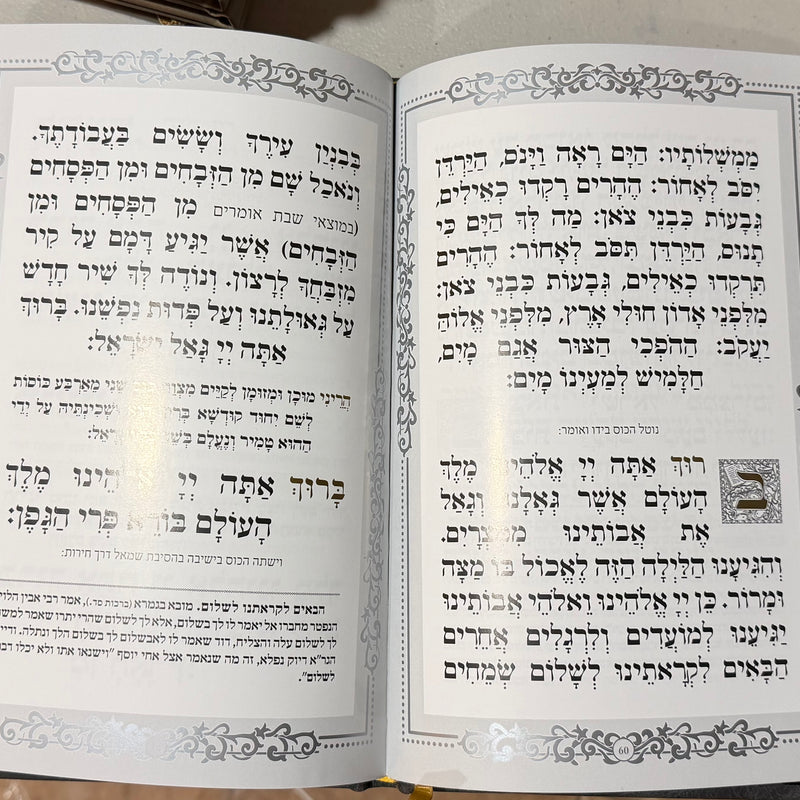 מַמְשְׁלוֹתָיו: הַיָּם רָאָה וַיָּנֹס, הַיַּרְדֵּן
יִסֹּב לְאָחוֹר: הֶהָרִים רָקְדוּ כְאֵילִים,
גְּבָעוֹת כִּבְנֵי צֹאן: מַה לְּךָ הַיָּם כִּי
תָנוּס, הַיַּרְדֵּן תִּסֹּב לְאָחוֹר: הֶהָרִים
תִּרְקְדוּ כְאֵילִים, גְּבָעוֹת כִּבְנֵי צֹאן:
מִלִּפְנֵי אָדוֹן חוּלִי אָרֶץ, מִלִּפְנֵי אֱלוֹהַּ
יַעֲקֹב: הַהֹפְכִי הַצּוּר אֲגַם מָיִם,
חַלָּמִישׁ לְמַעְיְנוֹ מָיִם:
נוטל הכוס בידו ואומר:
בָּרוּךְ אַתָּה יְיָ אֱלֹהֵינוּ מֶלֶךְ
הָעוֹלָם אֲשֶׁר גְּאָלָנוּ וְגָאַל
אֶת אֲבוֹתֵינוּ מִמִּצְרָיִם.
וְהִגִּיעָנוּ הַלַּיְלָה הַזֶּה לֶאֱכוֹל בּוֹ מַצָּה
וּמָרוֹר. כֵּן יְיָ אֱלֹהֵינוּ וֵאלֹהֵי אֲבוֹתֵינוּ
יַגִּיעֵנוּ לְמוֹעֲדִים וְלִרְגָלִים אֲחֵרִים
הַבָּאִים לִקְרָאתֵינוּ לְשָׁלוֹם שְׂמֵחִים
60
בְּבִנְיַן עִירֶךָ וְשָׂשִׂים בַּעֲבוֹדָתֶךָ.
וְנֹאכַל שָׁם מִן הַזְּבָחִים וּמִן הַפְּסָחִים
(במוצאי שבת אומרים מִן הַפְּסָחִים וּמִן
הַזְּבָחִים) אֲשֶׁר יַגִּיעַ דָּמָם עַל קִיר
מִזְבַּחֲךָ לְרָצוֹן. וְנוֹדֶה לְךָ שִׁיר חָדָשׁ
עַל גְּאוּלָּתֵנוּ וְעַל פְּדוּת נַפְשֵׁנוּ. בָּרוּךְ
אַתָּה יְיָ גָּאַל יִשְׂרָאֵל:
הֲרֵינִי מוּכָן וּמְזוּמָן לְקַיֵּים מִצְוַת כוֹס שֵׁנִי מֵאַרְבַּע כּוֹסוֹת
לְשֵׁם יִחוּד קוּדְשָׁא בְּרִיךְ הוּא וּשְׁכִינְתֵּיהּ עַל יְדֵי
הַהוּא טָמִיר וְנֶעְלָם בְּשֵׁם כָּל יִשְׂרָאֵל:
בָּרוּךְ אַתָּה יְיָ אֱלֹהֵינוּ מֶלֶךְ
הָעוֹלָם בּוֹרֵא פְּרִי הַגָּפֶן:
וישתה הכוס בישיבה בהסיבת שמאל דרך חירות:
הבאים לקראתנו לשלום. מובא בגמרא (ברכות סד.), אמר רבי אבין הלוי
הנפטר מחברו אל יאמר לו לך בשלום, אלא לך לשלום שהרי יתרו שאמר למשה
לך לשלום עלה והצליח, דוד שאמר לו לאבשלום לך בשלום הלך ונתלה.
הגר"א דיוק נפלא, זה מה שנאמר אצל אחי יוסף "וישנאו אתו ולא יכלו
לשלום".